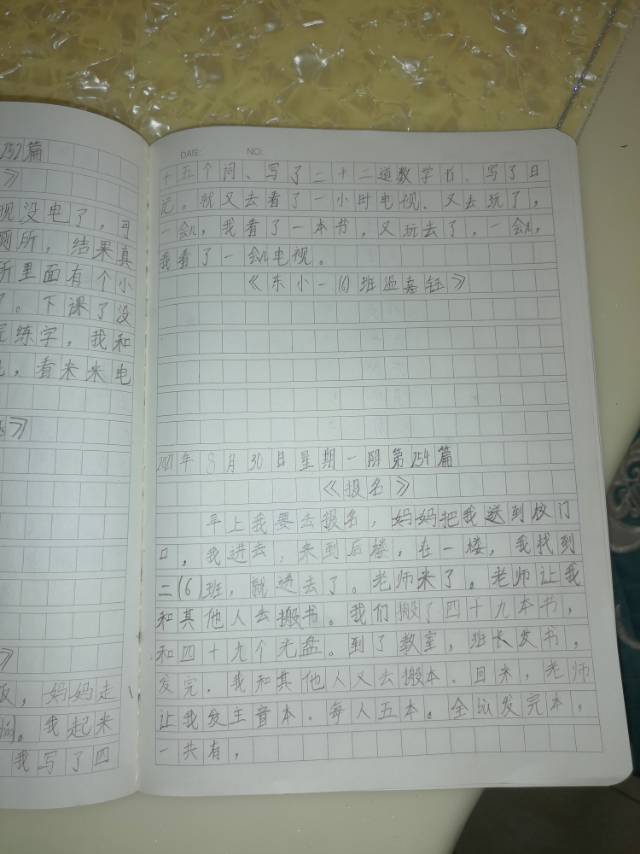 252篇
》
视没电了，可
厕所，结果真
所里面有个小
。下课了没
练字，我和
，看未来电
》
》
饭，妈妈走
。我起来
我写了四
DATE: NO:
十五个问、写了二十二道数学竹、写了日
记。就又去看了一小时电视、又去玩了，
一会儿，我看了一本书，又玩去了。一会儿，
我看了一会儿电视。
《东小一(6)班
2021年8月30日星期一阴第254篇
《报名》
早上我要去报名，妈妈把我送到校门
口，我进去，来到后楼，在一楼，我找到
二(6)班，就进去了。老师来了。老师让我
和其他人去搬书。我们搬了四十九本书，
和四十九个光盘。到了教室，班长发书，
发完，我和其他人又去搬本、回来，老师
让我发王音本，每人五本。全发完本，
一共有，